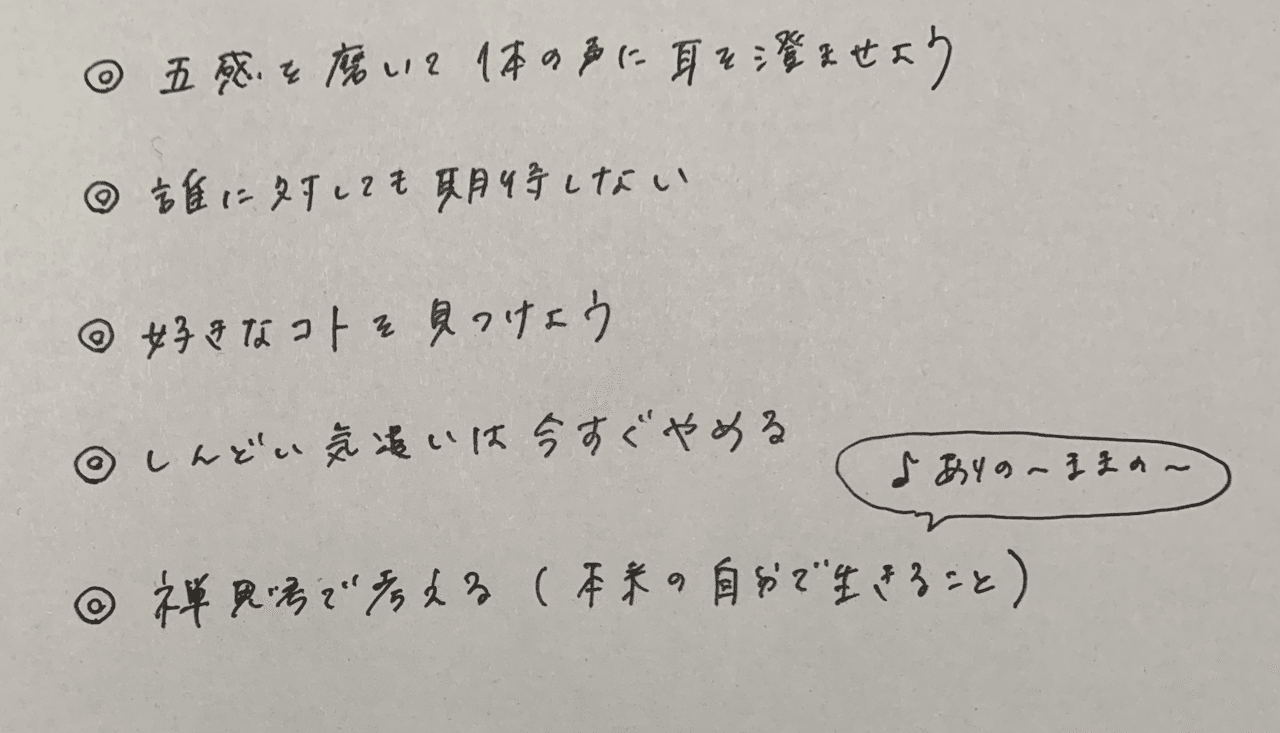 ◎ 五感を磨いて体の声に耳を澄ませよう
◎ 誰に対しても期待しない
◎ 好きなコトを見つけよう
◎ しんどい気遣いは今すぐやめる
♪ ありの〜ままの〜
◎ 禅思考で考える(本来の自分で生きること)